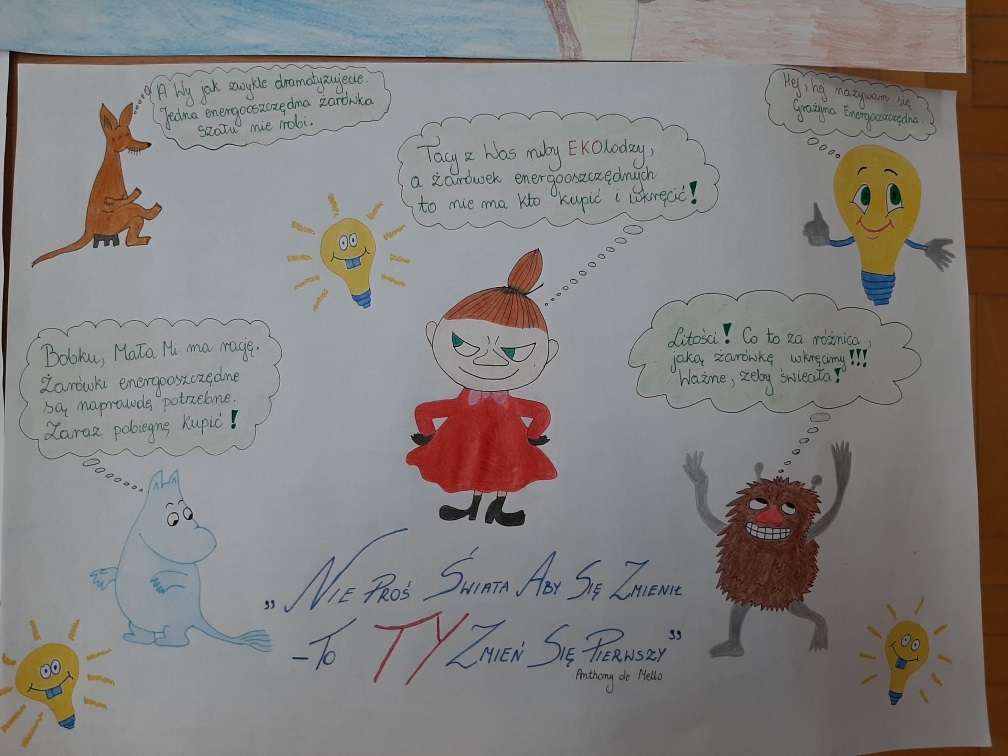 A Wy jak zwykle dramatyzujecie.
Jedna energooszczędna żarówka
szału nie robi.
Tacy z Was niby EKOlodzy,
a żarówek energooszczędnych
to nie ma kto kupić i wkręcić!
Hej, hej nazywam się
Grażyna Energooszczędna
Bobku, Mała Mi ma rację.
Żarówki energooszczędne
są naprawdę potrzebne.
Zaraz pobiegnę kupić!
Litości! Co to za różnica,
jaką żarówkę wkręcimy!!!
Ważne, żeby świeciła!
„Nie Proś Świata Aby Się Zmienił
– To TY Zmień Się Pierwszy”
Anthony de Mello